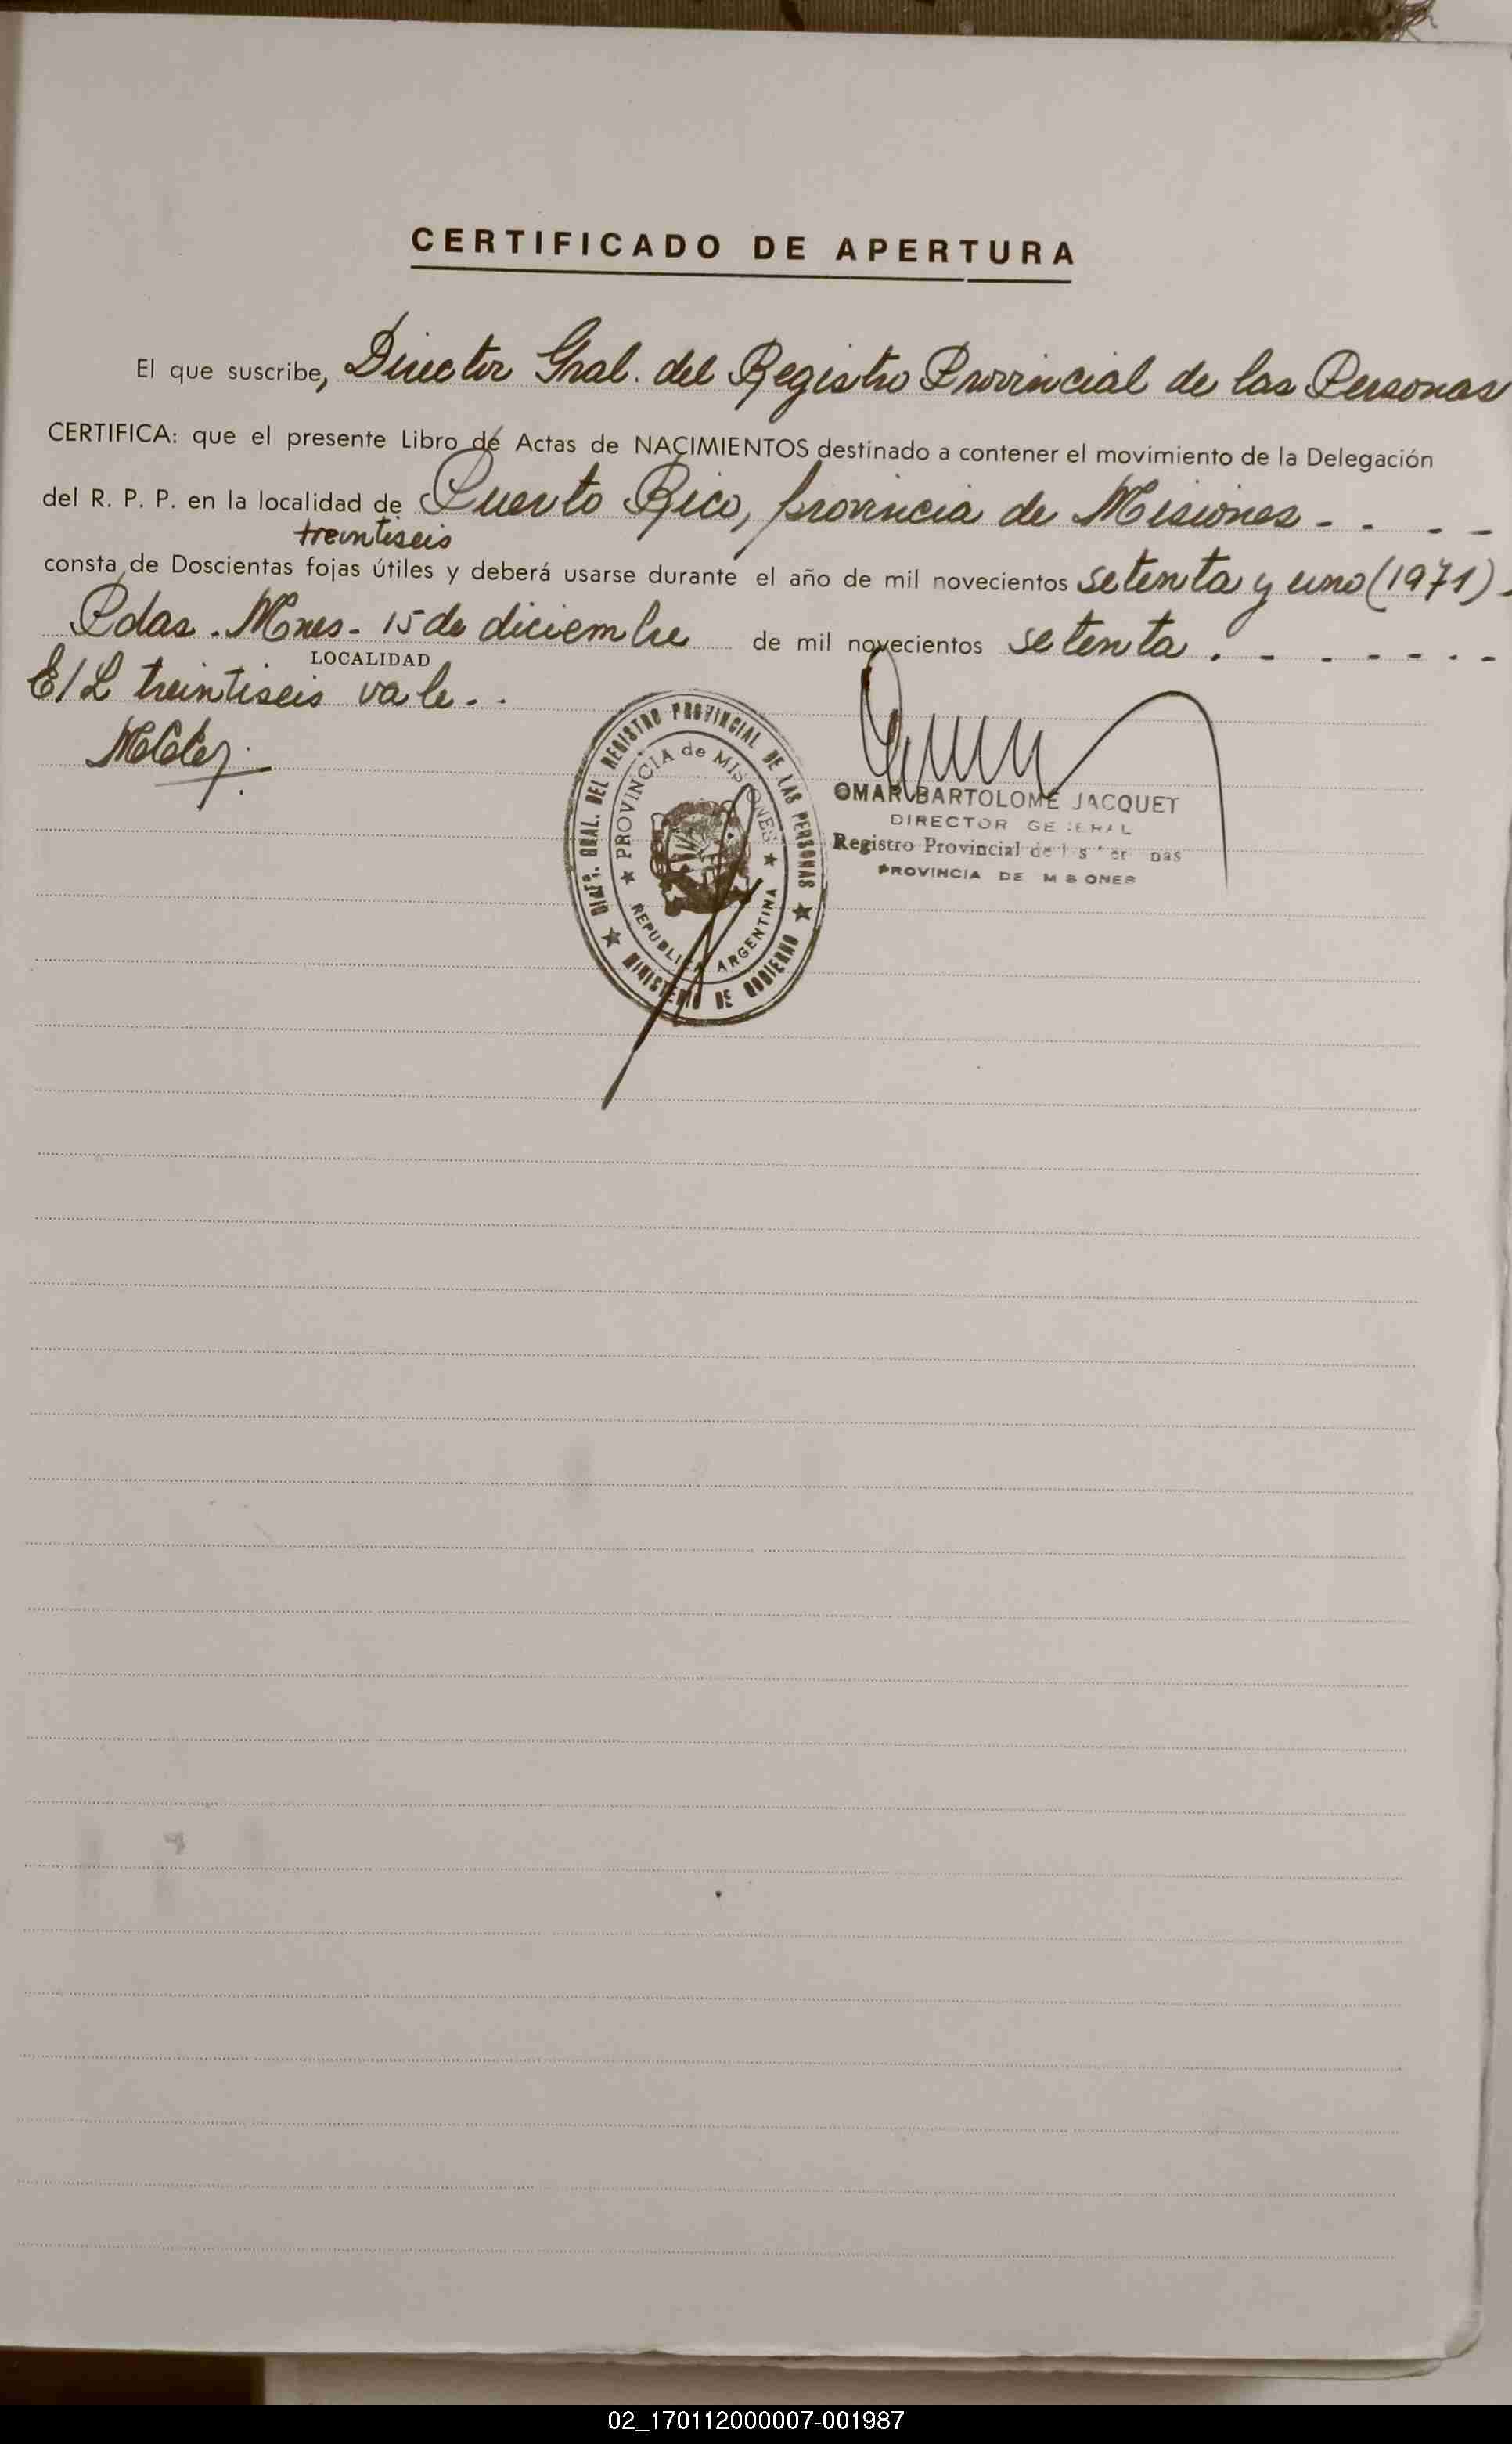 CERTIFICADO DE APERTURA
El que suscribe, Director Gral. del Registro Provincial de las Personas
CERTIFICA: que el presente Libro de Actas de NACIMIENTOS destinado a contener el movimiento de la Delegación
del R. P. P. en la localidad de Puerto Rico, provincia de Misiones - . - -
treintiseis
consta de Doscientas fojas útiles y deberá usarse durante el año de mil novecientos setenta y uno (1971) -
Pdas. Mnes - 15 de diciembre de mil novecientos setenta . - - - - - - -
LOCALIDAD
E/L treintiseis vale - .
DIREC. GRAL. DEL REGISTRO PROVINCIAL DE LAS PERSONAS
MINISTERIO DE GOBIERNO
PROVINCIA de MISIONES
REPUBLICA ARGENTINA
OMAR BARTOLOME JACQUET
DIRECTOR GENERAL
Registro Provincial de las Personas
PROVINCIA DE MISIONES
02_170112000007-001987